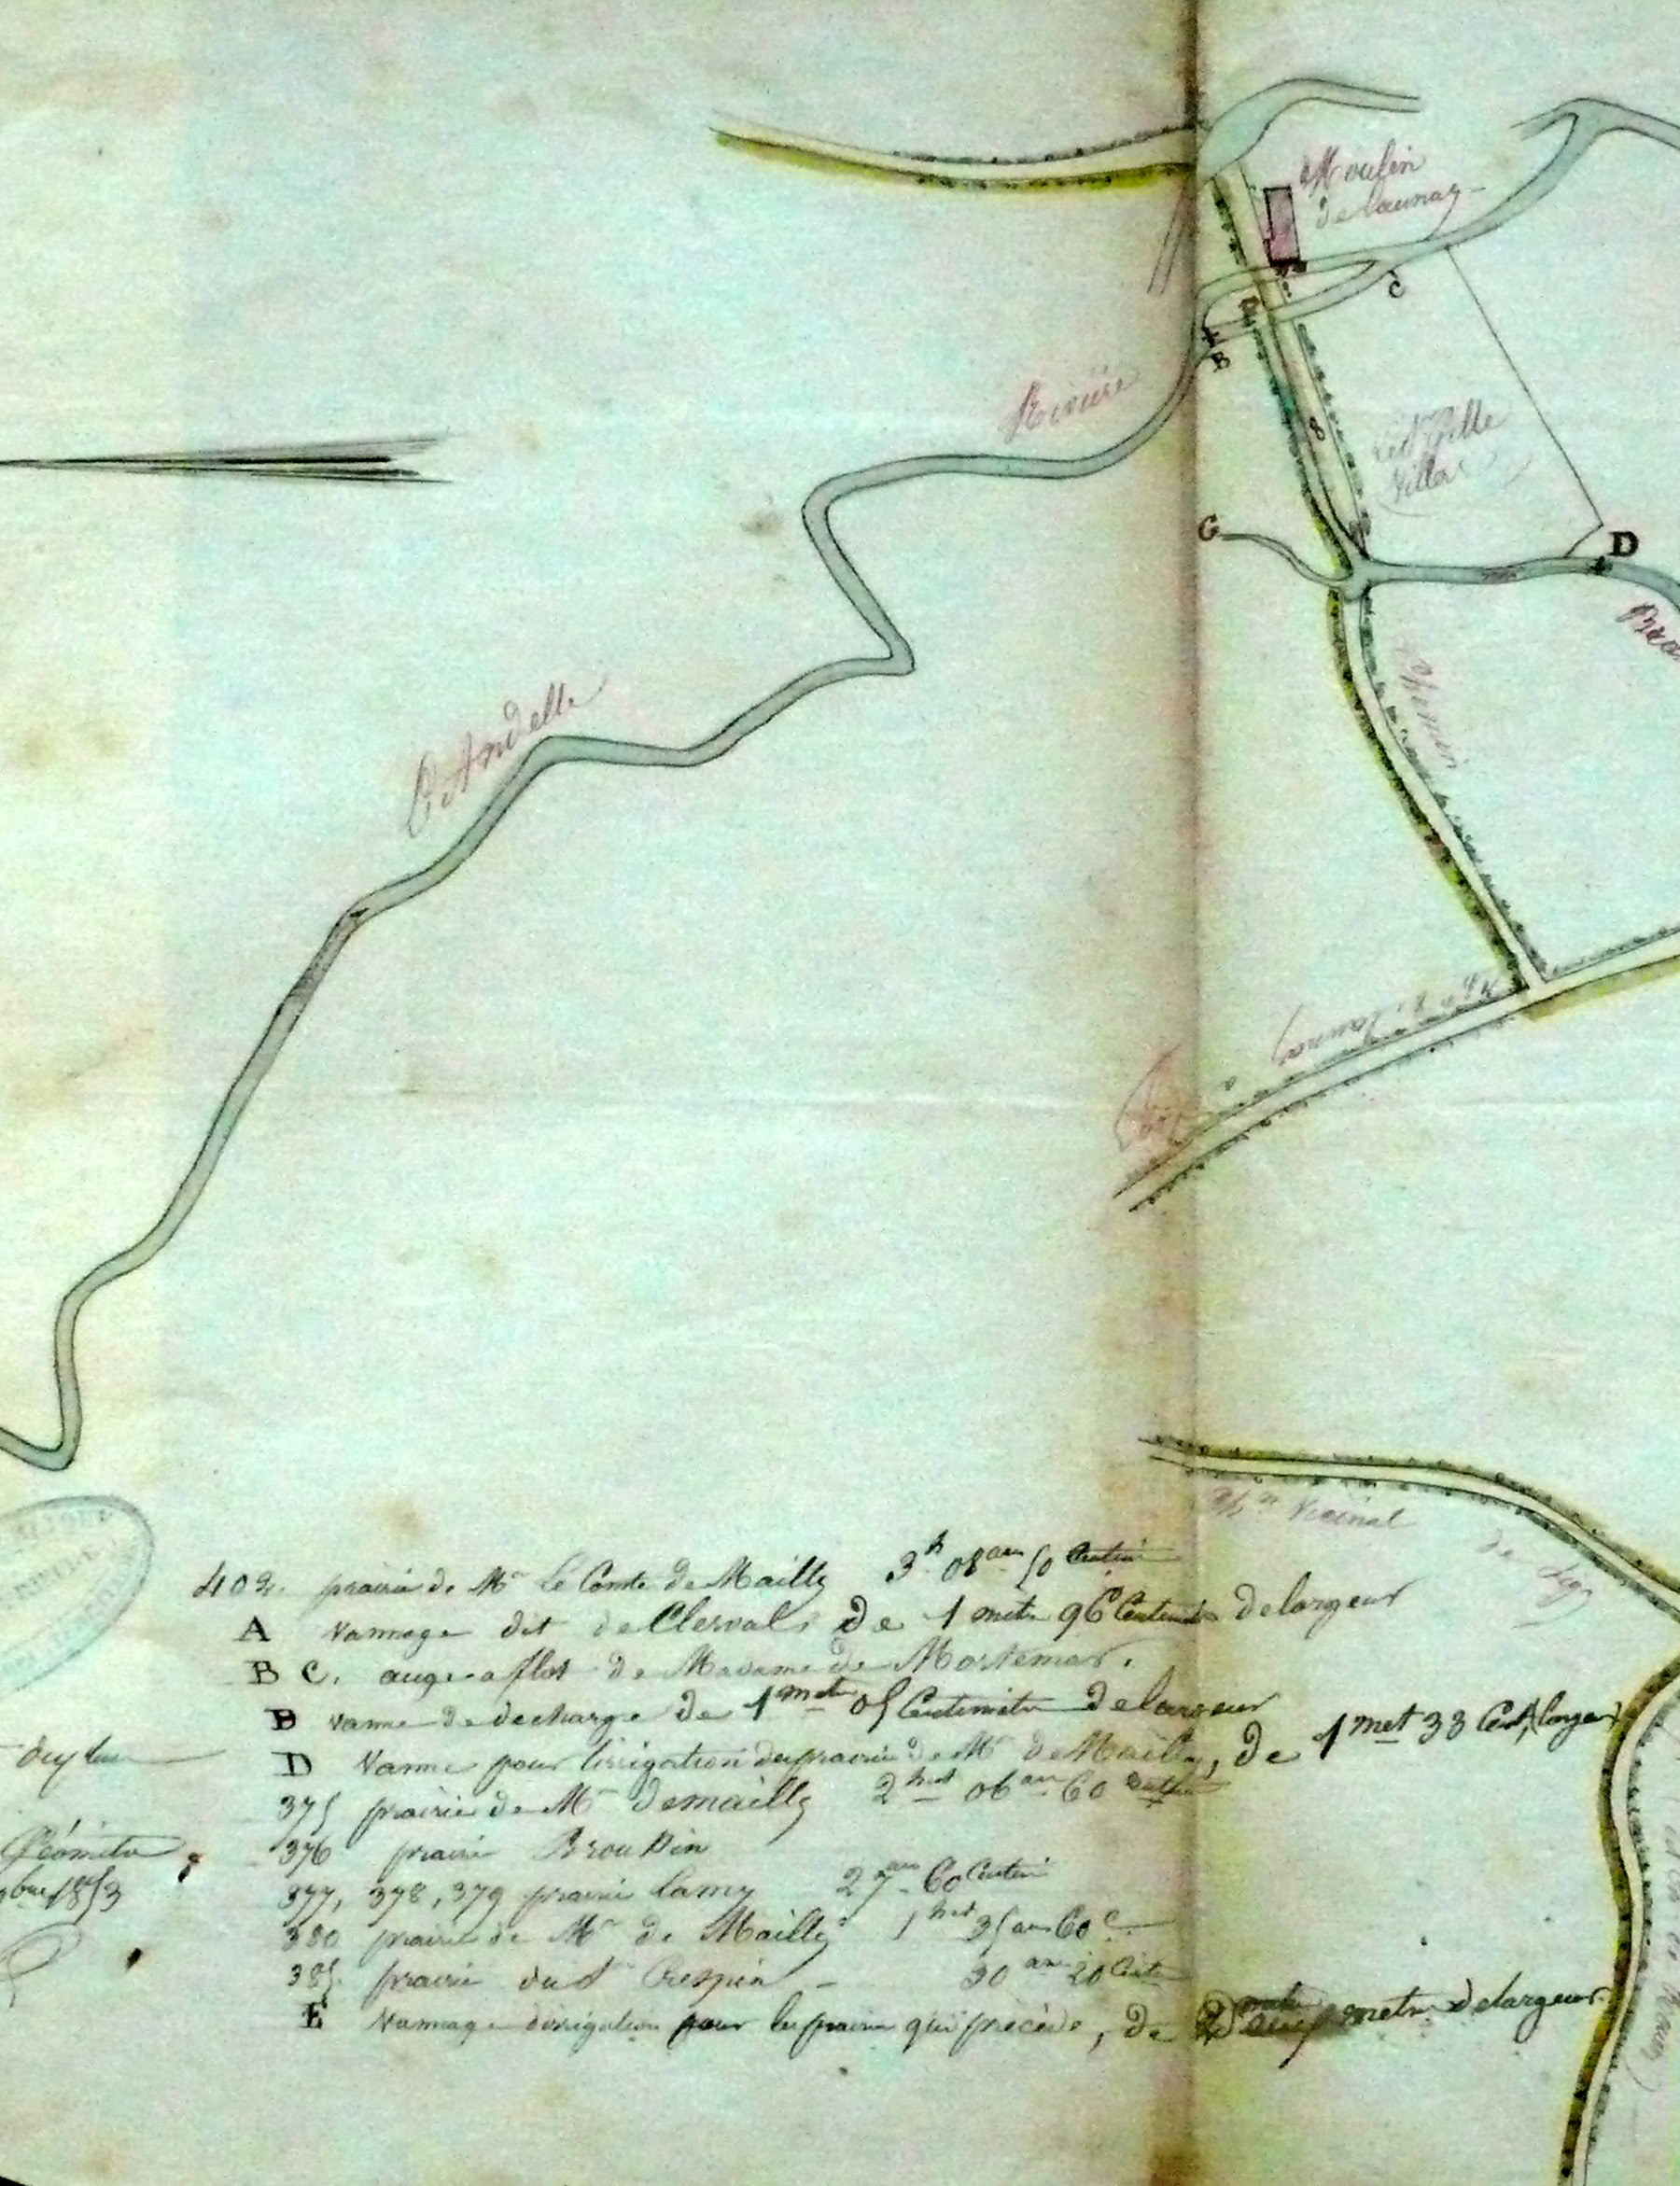 Moulin
de launay
C
B
8
Rivière
G
D
L'Andelle
Chemin
Ch.in Vicinal
de
402. prairie de Mr Le Comte de Mailly 3h 08 ares 50 Centiè
A Vannage dit de Clerval, de 1 metre 96 Centimetres de largeur
B C. auge a flot de Madame de Mortemar.
B Vanne de decharge de 1 metre 05 Centimetre de largeur
D Vanne pour l'irrigation des prairies de Mr de Mailly, de 1 met 33 Cent, (largeur)
375 prairie de Mr demailly 2 hect 06 ares 60 Centi
376 prairie Broutin
377, 378, 379 prairie Lamy 27 ares 60 Centi
380 prairie de Mr de Mailly 1 hect 35 ares 60 c
385. prairie du Sr Crespin - 30 ares 20 Centi
E Vannage d'irrigation pour les prairies qui précède, de Deux metres de largeur.
Géomètre
bre 1853